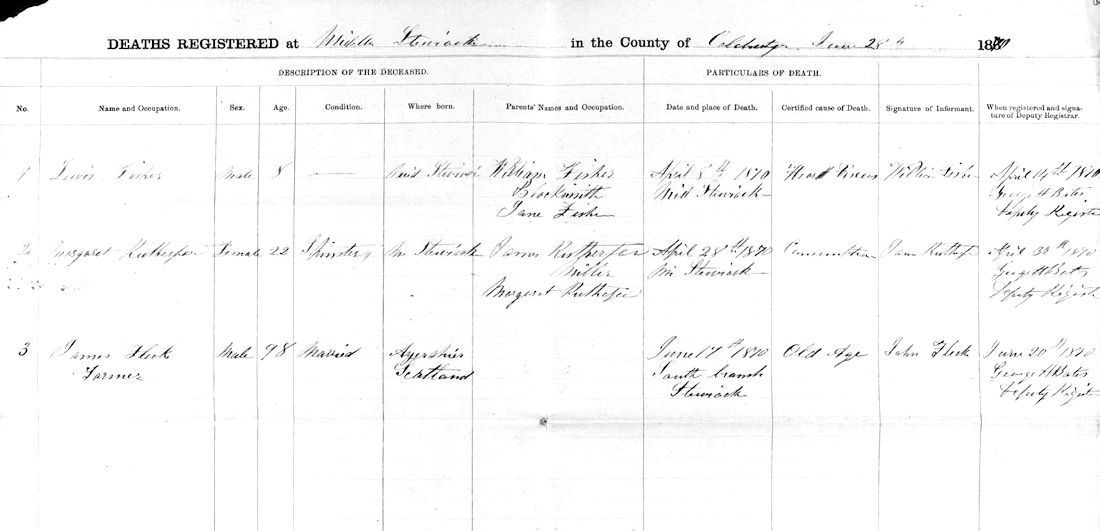 DEATHS REGISTERED at Middle Stewiack in the County of Colchester June 28th 1870
DESCRIPTION OF THE DECEASED. PARTICULARS OF DEATH.
No. Name and Occupation. Sex. Age. Condition. Where born. Parents' Names and Occupation. Date and place of Death. Certified cause of Death. Signature of Informant. When registered and signa-
ture of Deputy Registrar.
1 Lewis Fisher Male 8 — Mid Stewiack William Fisher April 8th 1870 William Fisher April 14th 1870
Blacksmith Mid Stewiack George H Bates
Jane Fisher Deputy Register
2 Margaret Rutherfor Female 22 Spinster M Stewiack James Rutherfor April 28th 1870 Consumption April 30th 1870
Miller M Stewiack George H Bates
Margaret Deputy Regist
3 James Fleck Male 98 Married Ayershire June 17th 1870 Old Age John Fleck June 20th 1870
Farmer Scottland South branch George H Bates
Stewiack Deputy Regist